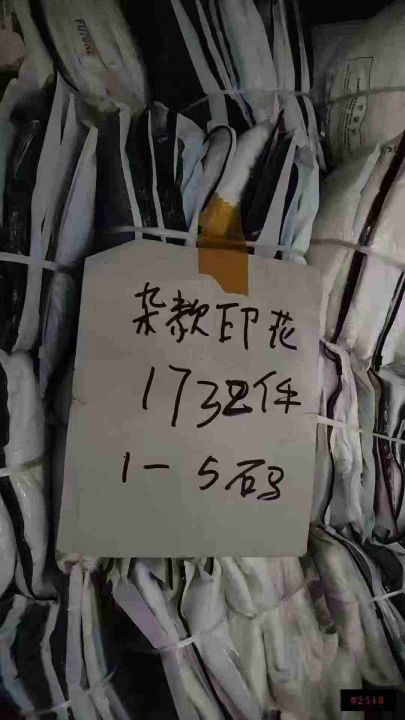 杂款印花
1732件
1-5码
#2548